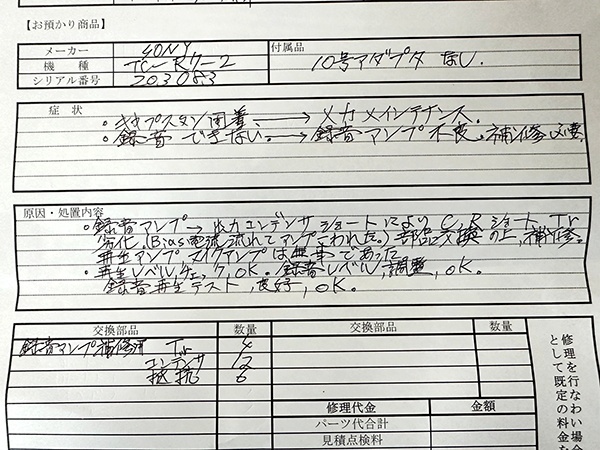 【お預かり商品】
メーカー SONY 付属品
機種 TC-R7-2 10号アダプタ なし.
シリアル番号 203083
症状
・キャプスタン固着. → メカメインテナンス.
・録音できない. → 録音アンプ不良. 補修必要.
原因・処置内容
・録音アンプ → 出力コンデンサショートにより C,Rショート,Tr
劣化.(Bias電流流れてアンプこわれた.) 部品交換の上,補修.
再生アンプ,マイクアンプは無事であった.
・再生レベル,チェック,OK. 録音レベル,調整,OK.
録音再生テスト,良好,OK.
交換部品 数量 交換部品 数量
録音アンプ補修済 Tr 4
コンデンサ 12
抵抗 6
修理代金 金額
パーツ代合計
見積点検料
修理を行なわい場合
として既定の料金を